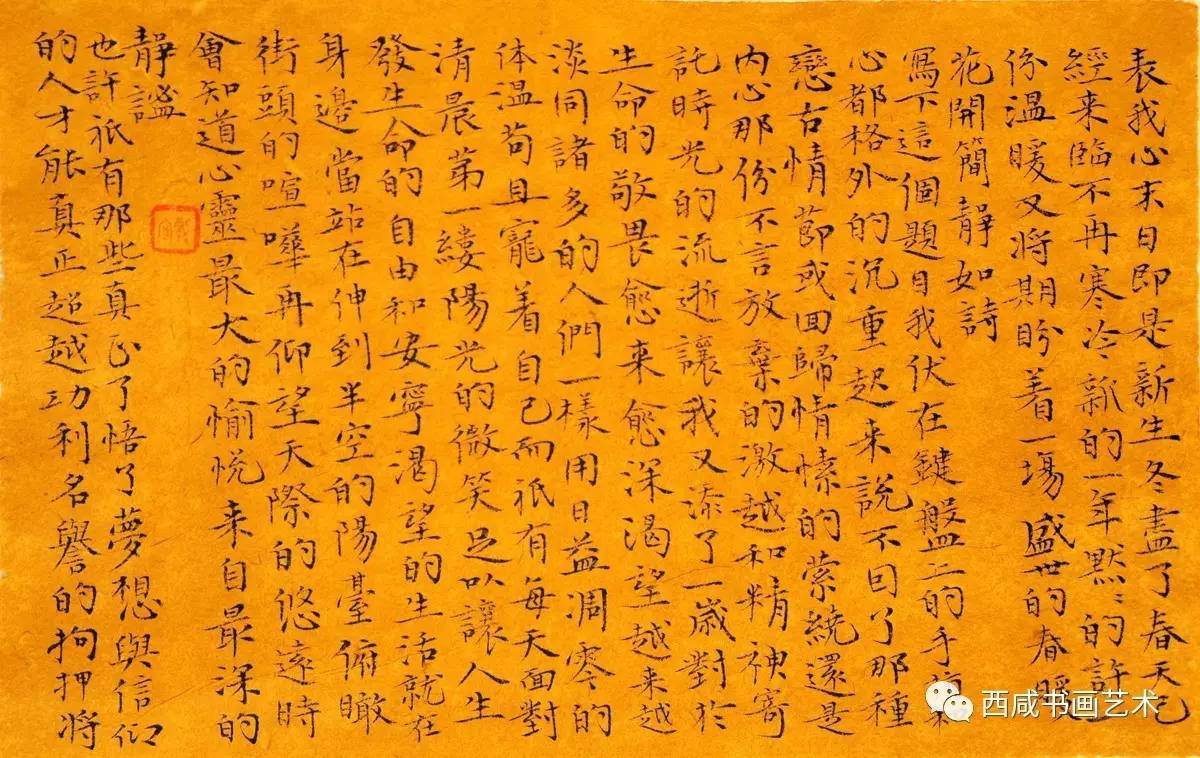 表我心末日即是新生冬盡了春天已
經来臨不再寒冷新的一年默〻的許
份温暖又将期盼着一場盛世的春暖
花開簡静如詩
寫下這個題目我伏在鍵盤上的手和
心都格外的沉重起来説不回了那種
戀古情節或回歸情愫的萦繞還是
内心那份不言放棄的激越和精神寄
託時光的流逝讓我又添了一歳對於
生命的敬畏愈来愈深渴望越来越
淡同諸多的人們一樣用日益凋零的
体温苟且寵着自己而祇有每天面對
清晨第一縷陽光的微笑足以讓人生
發生命的自由和安寧渴望的生活就在
身邊當站在伸到半空的陽臺俯瞰
街頭的喧嘩再仰望天際的悠遠時
會知道心靈最大的愉悦来自最深的
靜謐
也許祇有那些真正了悟了夢想與信仰
的人才能真正超越功利名譽的拘押将
西咸书画艺术